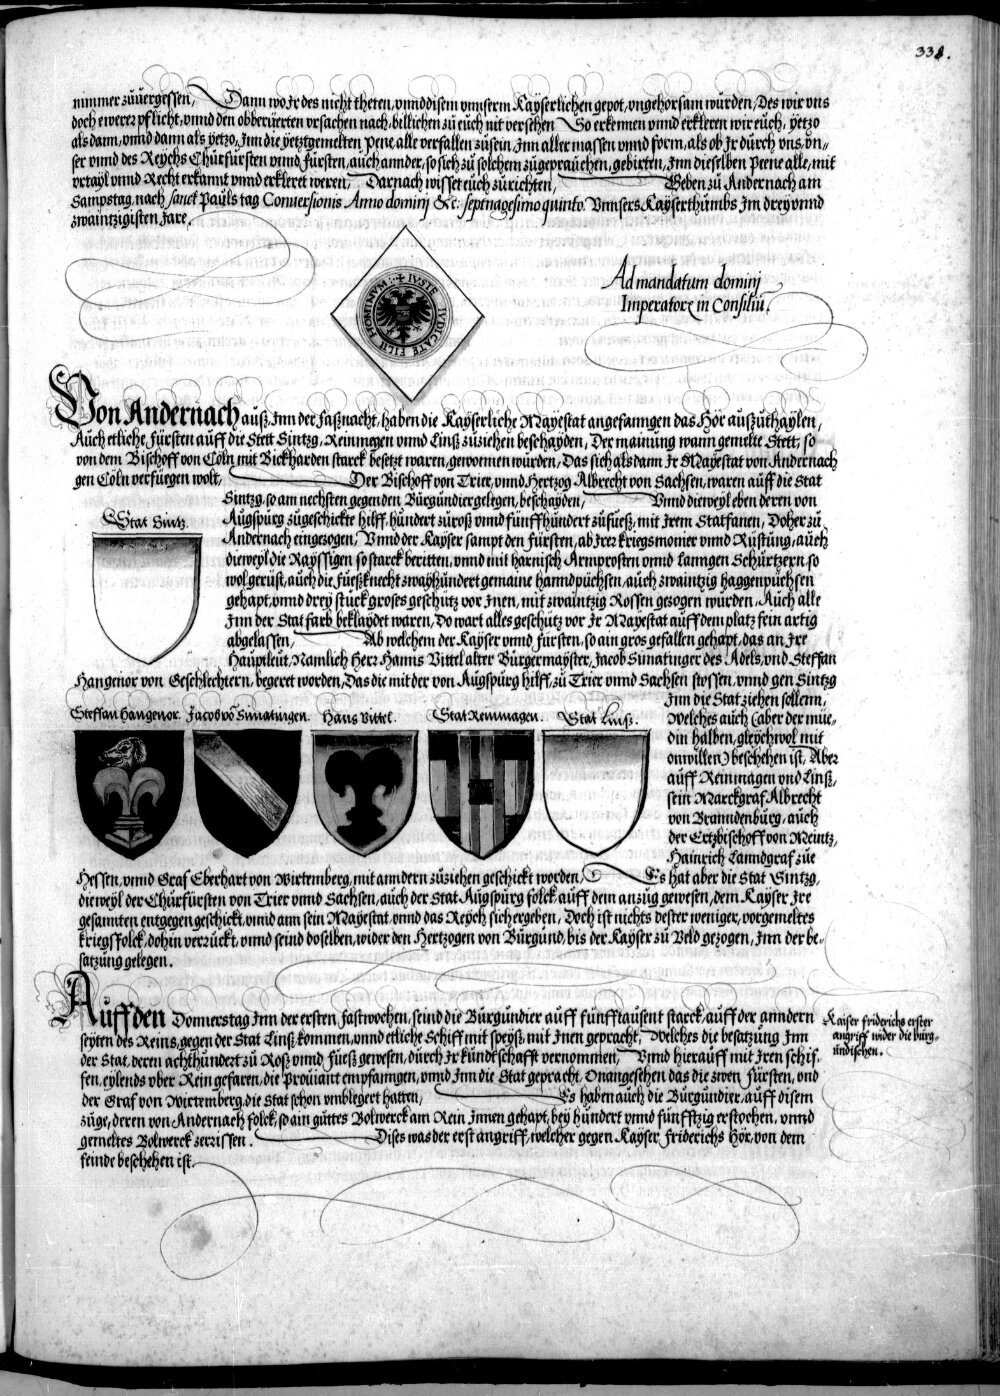 338.
nimmer zůuergessen, Dann wo Jr des nicht theten, vnnd disem vnnserm Kayserlichen gepot, vngehorsam wurden, Des wir vns
doch ewerer pflicht, vnnd den obberuerten vrsachen nach, billichen zů euch nit versehen So erkennen vnnd erkleren wir euch, yetzo
als dann, vnnd dann als yetzo, Jnn die yetztgemelten Pene alle verfallen zů sein, Jnn aller massen vnnd form, als ob Jr durch vns, vn=
ser vnnd des Reychs Chürfürsten vnnd Fürsten, auch annder, so sich zů solchem zůgeprauchen, gebirten, Jnn dieselben Peene alle, mit
vrtayl vnnd Recht erkannt vnnd erkleret weren, Darnach wisset euch zůrichten, Geben zů Andernach am
Sampstag, nach sanct Pauls tag Conuersionis Anno dominj &c. septuagesimo quinto. Vnnsers Kayserthumbs Jm drey vnnd
zwaintzigisten Jare.
✝ IVSTE IVDICATE FILII HOMINVM
Ad mandatum dominj
Imperatorȩ in Consiliū.
Von Andernach auß, Jnn der faßnacht, haben die Kayserliche Mayestat angefanngen das Hör außzůthaylen,
Auch etliche Fürsten auff die Stett Sintzg, Reinmegen vnnd Linß zůziehen beschayden, Der mainung wann gemelte Stett, so
von dem Bischoff von Cöln mit Bickharden starck besetzt waren, gewonnen wurden, Das sich als dann Jr Mayestat von Andernach
gen Cöln verfuegen wolt, Der Bischoff von Trier, vnnd Hertzog Albrecht von Sachsen, waren auff die Stat
Sintzg, so am nechsten gegen den Burgundier gelegen, beschayden, Vnnd dieweyl eben deren von
Augspurg zůgeschickte hilff, hundert zůroß vnnd fünffhundert zůfueß, mit Jrem Statfanen, Doher zů
Andernach eingezogen, Vnnd der Kayser sampt den Fürsten, ab Jrer kriegsmonier vnnd Rüstung, auch
dieweyl die Rayssigen so starck beritten, vnnd mit harnisch Armprosten vnnd lanngen Schürtzern, so
wol gerüst, auch die Fueßknecht zwayhundert gemaine hanndpüchsen, auch zwaintzig haggenpüchsen
gehapt, vnnd drey stuck groses geschütz vor Jnen, mit zwaintzig Rossen gezogen wurden, Auch alle
Jnn der Stat farb beklaydet waren, Do wart alles geschütz vor Jr Mayestat auff dem platz fein artig
abgelassen, Ab welchem der Kayser vnnd Fürsten, so ain gros gefallen gehapt, das an Jre
Haupleut, Namlich Herr Hanns Vittel alter Burgermayster, Jacob Sunatinger des Adels, vnd Steffan
Hangenor von Geschlechtern, begeret worden, Das die mit der von Augspurg hilff, zů Trier vnnd Sachsen stossen, vnnd gen Sintzg
Stat Sintz.
Steffan Hangenor. Jacob vō Sunatingen. Hans Vittel. Stat Reinmagen. Stat Linß.
Jnn die Stat ziehen sollenn,
Welches auch (aber der mue=
din halben, gleychwol mit
onwillen) beschehen ist, Aber
auff Reinmagen vnd Linß,
sein Marckgraf Albrecht
von Branndenburg, auch
der Ertzbischoff von Meintz,
Hainrich Lanndgraf zue
Hessen, vnnd Graf Eberhart von Wirtemberg, mit anndern zůziehen geschickt worden, Es hat aber die Stat Sintzg,
dieweyl der Chürfürsten von Trier vnnd Sachsen, auch der Stat Augspurg folck, auff dem anzug gewesen, dem Kayser Jre
gesannten entgegen geschickt, vnnd ann sein Mayestat, vnnd das Reych sich ergeben, Doch ist nichts dester weniger, vorgemeltes
kriegsfolck, dohin verruckt, vnnd seind doselben, wider den Hertzogen von Burgund, bis der Kayser zů Veld gezogen, Jnn der be=
satzung gelegen.
Auff den Donnerstag Jnn der ersten Fastwochen, seind die Burgundier auff fünfftausent starck, auff der anndern
seyten des Reins, gegen der Stat Linß kommen, vnnd etliche Schiff mit speyß, mit Jnen gepracht, Welches die besatzung Jnn
der Stat, deren achthundert zů Roß vnnd Fueß gewesen, durch Jr kundtschafft vernommen, Vnnd hierauff mit Jren schif=
fen, eylends vber Rein gefaren, die Prouiant empfanngen, vnnd Jnn die Stat gepracht, Onangesehen das die zwen Fürsten, vnd
der Graf von Wirtemberg, die Stat schon vmblegert hatten, Es haben auch die Burgundier, auff disem
zůge, deren von Andernach folck, so ain guttes Bolwerck am Rein Jnnen gehapt, bey hundert vnnd fünfftzig erstochen, vnnd
gemeltes Bolwerck zerrissen. Dises was der erst angriff, welcher gegen Kayser Friderichs Hör, von dem
feinde beschehen ist.
Kaiser friderichs erster
angriff wider die burg=
undischen.